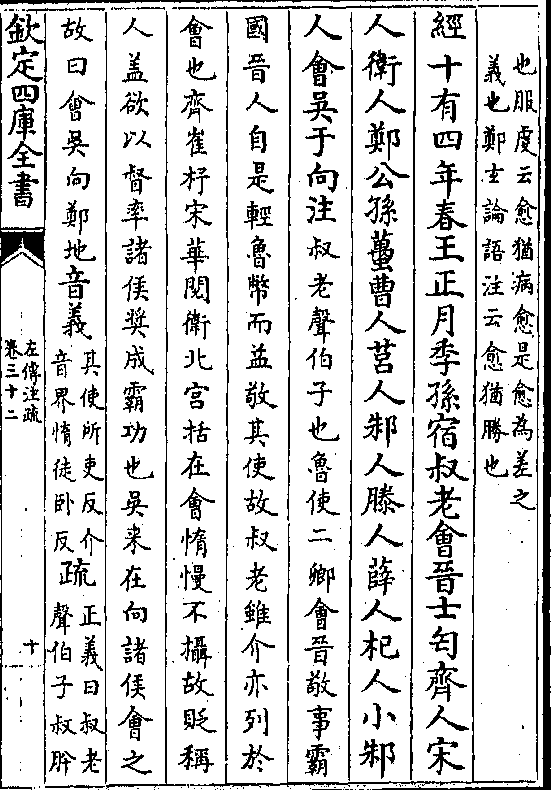 也服虔云愈猶病愈是愈為差之
義也鄭玄論語注云愈猶勝也
經十有四年春王正月季孫宿叔老會晉士匄齊人宋
人衛人鄭公孫蠆曹人莒人邾人滕人薛人杞人小邾
人會吳于向注叔老聲伯子也魯使二卿會晉敬事霸
國晉人自是輕魯幣而益敬其使故叔老雖介亦列於
會也齊崔杼宋華閱衛北宫括在會惰慢不攝故貶稱
人盖欲以督率諸侯奬成霸功也吳来在向諸侯會之
故曰會吳向鄭地音義其使所吏反介
音界惰徒卧反
疏正義曰叔老
聲伯子叔肸
欽定四庫全書
左傳注疏
卷三十二
十